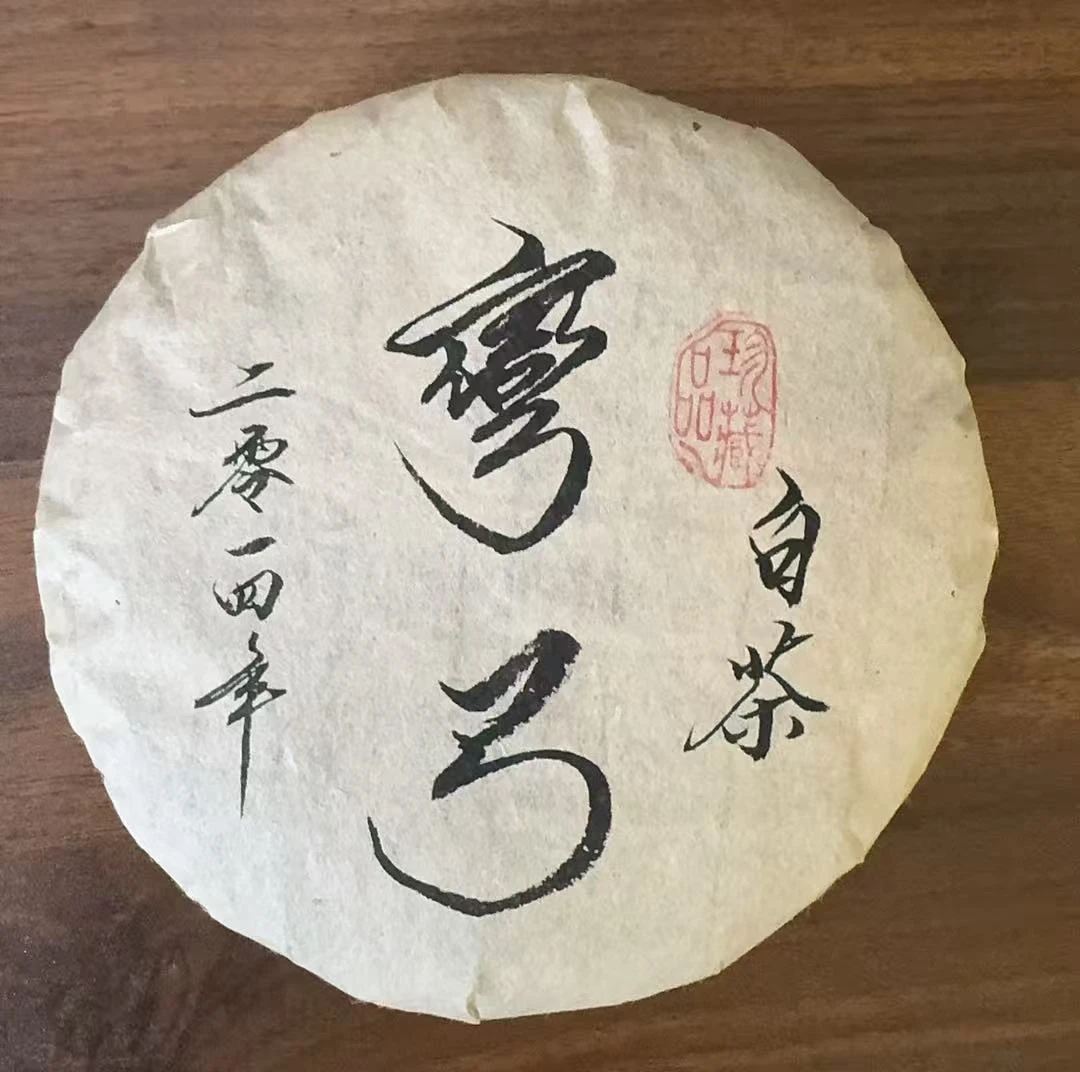 珍藏
品
白茶
彎弓
二零一四年